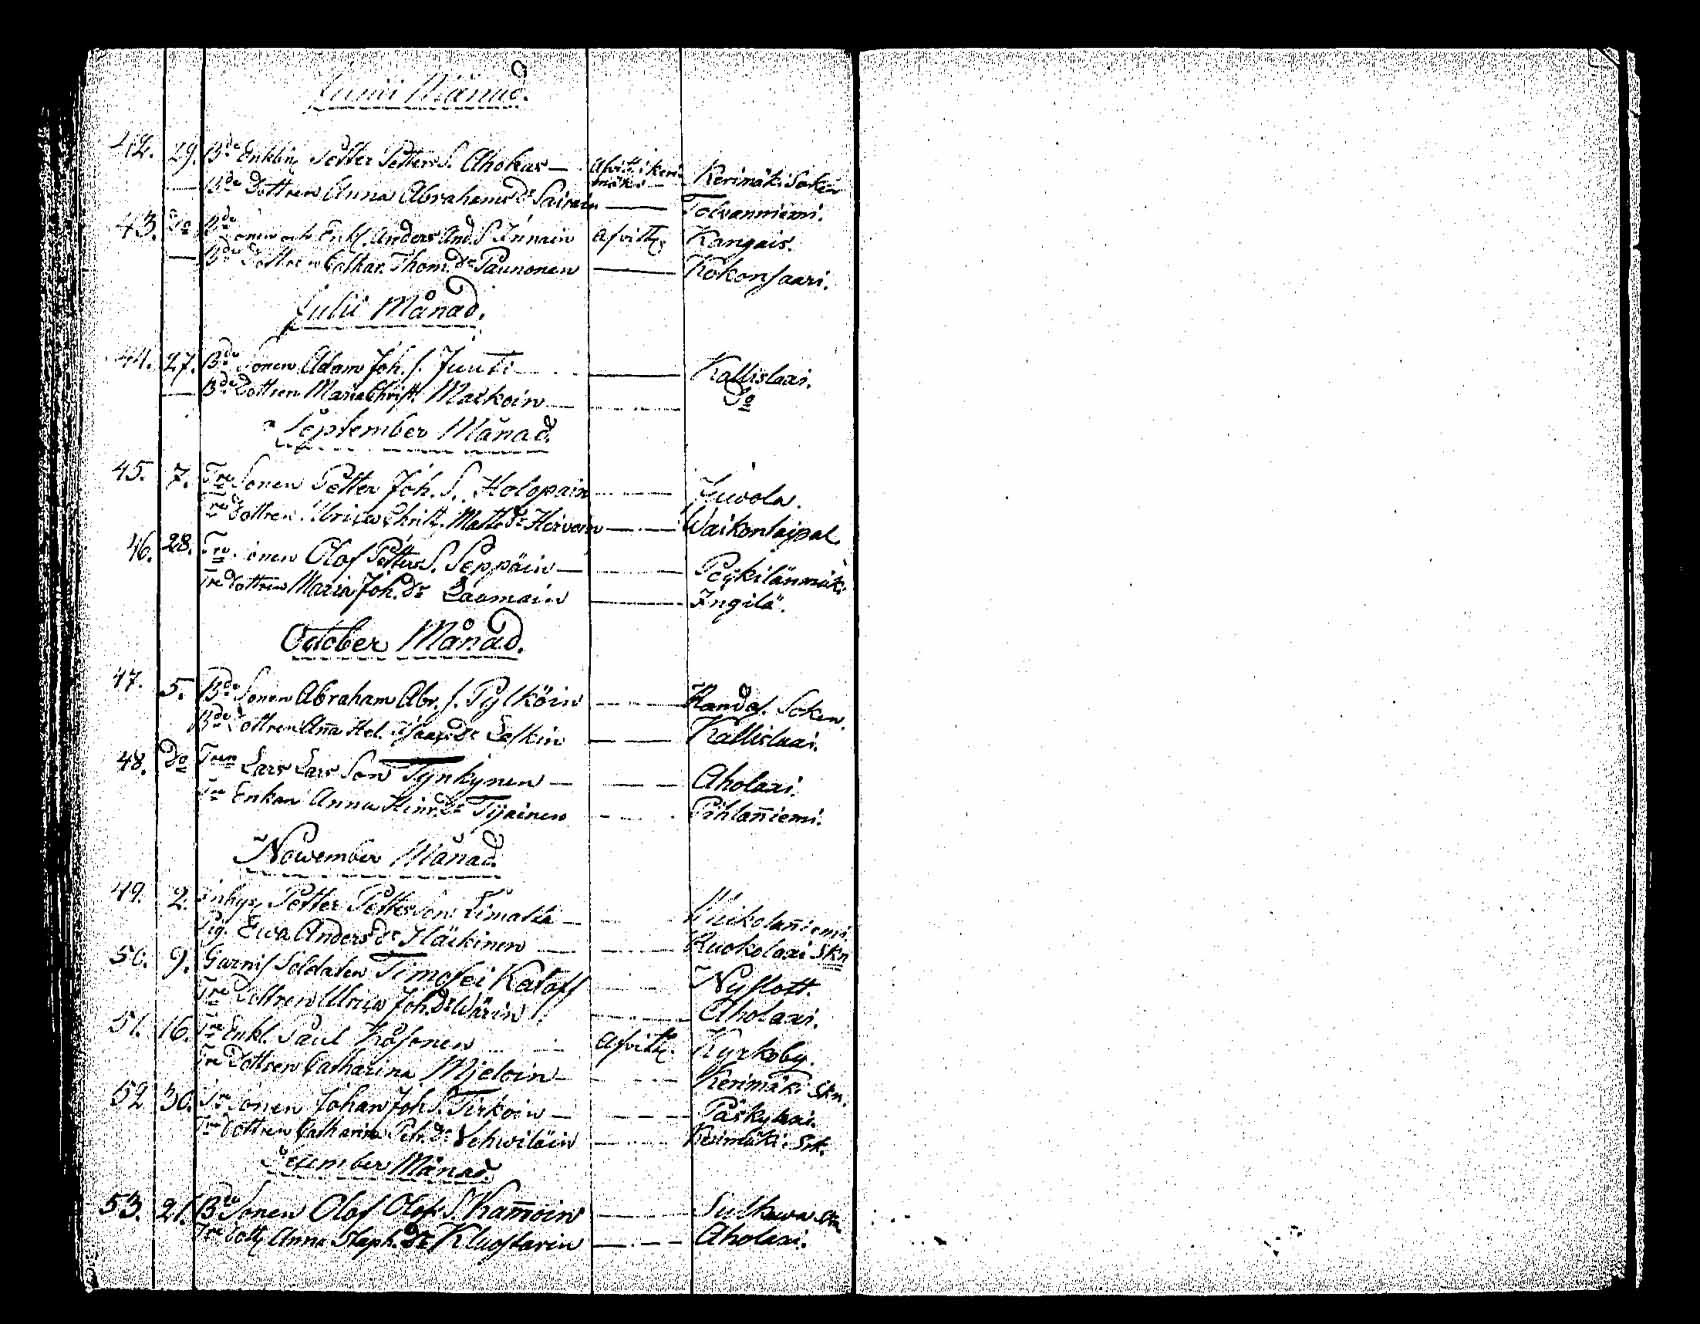 Junii Månad.
42. 29. Bde Enkling Petter Petters S. Ahokas — Afvitt. i Keri-
mäki — Kerimäki Soken
— Bde Dottren Anna Abrahams Dr Sairain — Tolvanniemi.
43. Do Bde Sonen och Enkl. Anders And. S. Innain Afvitt. Kangais.
— Bde Dottren Cathar. Thom. Dr Paunonen — Kokonsaari.
Julii Månad.
44. 27. Bde Sonen Adam Joh. S. Juuti — Kallislaxi.
— Bde Dottren Maria Christ. Maikoin — Do
September Månad.
45. 7. Tre Sonen Petter Joh. S. Holopain — Juvola.
Tre Dottren Ulrica Christ. Matts Dr Hirvoin — Waikontaipal.
46. 28. Tre Sonen Olof Petters S. Seppäin — Pöykilänmäki
Tre Dottren Maria Joh. Dr Laamain — Ingilä.
October Månad.
47. 5. Bde Sonen Abraham Abr. S. Pylköin — Randas. Soken.
Bde Dottren Anna Hel. Isaacs Dr Leskin — Kallislaxi.
48. Do Tren Lars Lars Son Tynkynen — Aholaxi.
Tre Enkan Anna Hinr. Dr Tijainen — Pihlañiemi.
November Månad.
49. 2. Inhys. Petter Petterson Limatta — Mikolañiemi.
Pig. Ewa Anders Dr Häckinen — Ruokolaxi Skn
50. 9. Garnis Soldaten Timofei Katoff — Nyslott.
Tre Dottren Ulrica Joh. Dr Wärin — Aholaxi.
51. 16. Tre Enkl. Paul Kåsonen Afvitt. Kyrkoby.
Tre Dottren Catharina Mjeloin — Kerimäki Skn.
52 30. Tre Sonen Johan Joh. S. Tirkoin — Päskylaxi.
Tre Dottren Catharina Petr. Dr Vehwiläin — Kerimäki. Sok.
December Månad.
53. 21. Bde Sonen Olof Olof S. Kam̄oin — Sulkawa Skn
Tre Dott. Anna Staph. Dr Kluostarin — Aholaxi.